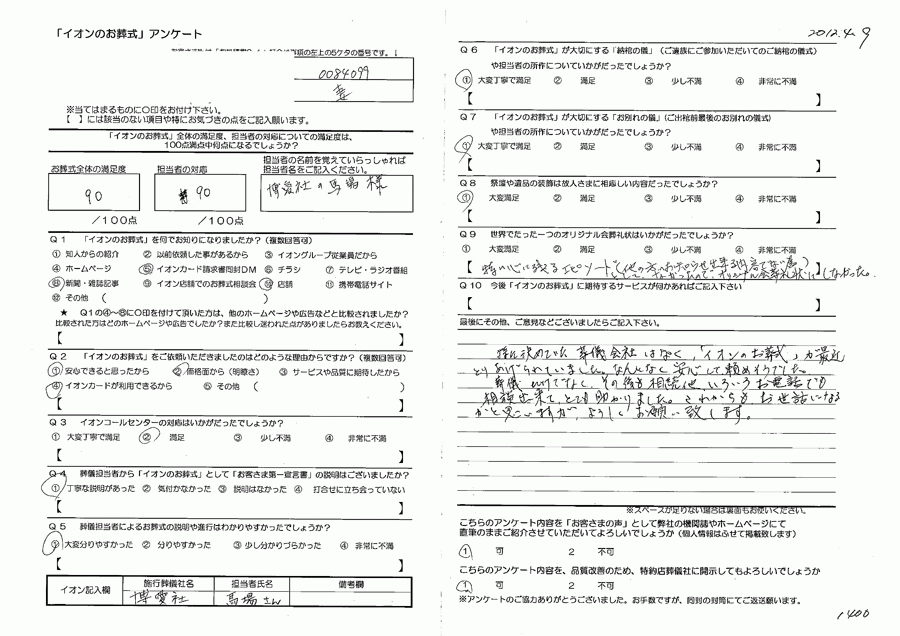 「イオンのお葬式」アンケート
項の左上の5ケタの番号です。
0084099
妻
※当てはまるものに○印をお付け下さい。
【 】には該当のない項目や特にお気づきの点をご記入願います。
「イオンのお葬式」全体の満足度、担当者の対応についての満足度は、
100点満点中何点になるでしょうか？
お葬式全体の満足度
担当者の対応
担当者の名前を覚えていらっしゃれば
担当者名をご記入ください。
90
90
博愛社の馬場様
/100点
/100点
Q1 「イオンのお葬式」を何でお知りになりましたか？（複数回答可）
① 知人からの紹介 ② 以前依頼した事があるから ③ イオングループ従業員だから
④ ホームページ ⑤ イオンカード請求書同封DM ⑥ チラシ ⑦ テレビ・ラジオ番組
⑧ 新聞・雑誌記事 ⑨ イオン店舗でのお葬式相談会 ⑩ 店頭 ⑪ 携帯電話サイト
⑫ その他 (
★ Q1の④~⑥に○印を付けて頂いた方は、他のホームページや広告などと比較されましたか？
比較された方はどのホームページや広告でしたか？また比較し迷われた点がありましたらお教えください。
【 】
Q2 「イオンのお葬式」をご依頼いただきましたのはどのような理由からですか？（複数回答可）
① 安心できると思ったから ② 価格面から（明瞭さ） ③ サービスや品質に期待したから
④ イオンカードが利用できるから ⑤ その他 ( )
【 】
Q3 イオンコールセンターの対応はいかがだったでしょうか？
① 大変丁寧で満足 ② 満足 ③ 少し不満 ④ 非常に不満
【 】
Q4 葬儀担当者から「イオンのお葬式」として「お客さま第一宣言書」の説明はございましたか？
① 丁寧な説明があった ② 気付かなかった ③ 説明はなかった ④ 打合せに立ち会っていない
【 】
Q5 葬儀担当者によるお葬式の説明や進行はわかりやすかったでしょうか？
① 大変分りやすかった ② 分りやすかった ③ 少し分かりづらかった ④ 非常に不満
【 】
イオン記入欄
施行葬儀社名
担当者氏名
備考欄
博愛社
馬場さん
2012.4.9
Q6 「イオンのお葬式」が大切にする「納棺の儀」（ご遺族にご参加いただいてのご納棺の儀式）
や担当者の所作についていかがだったでしょうか？
① 大変丁寧で満足 ② 満足 ③ 少し不満 ④ 非常に不満
【 】
Q7 「イオンのお葬式」が大切にする「お別れの儀」（ご出棺前最後のお別れの儀式）
や担当者の所作についていかがだったでしょうか？
① 大変丁寧で満足 ② 満足 ③ 少し不満 ④ 非常に不満
【 】
Q8 祭壇や遺品の装飾は故人さまに相応しい内容だったでしょうか？
① 大変満足 ② 満足 ③ 少し不満 ④ 非常に不満
【 】
Q9 世界でたった一つのオリジナル会葬礼状はいかがだったでしょうか？
① 大変満足 ② 満足 ③ 少し不満 ④ 非常に不満
【 特に心に残るエピソード
Q10 今後「イオンのお葬式」に期待するサービスが何かあればご記入下さい
【 】
最後にその他、ご意見などございましたらご記入下さい。
特に決めていた葬儀会社はなく、「イオンのお葬式」が最近
とりあげられていました。なんとなく安心して頼めそうでした。
葬儀だけでなく、その後も相続他、いろいろお電話でも
相談出来て、とても助かりました。これからもお世話になる
かと思いますが、よろしくお願い致します。
※スペースが足りない場合は裏面もお使いください。
こちらのアンケート内容を「お客さまの声」として弊社の機関誌やホームページにて
直筆のままご紹介させていただいてよろしいでしょうか（個人情報はふせて掲載致します）
1 可 2 不可
こちらのアンケート内容を、品質改善のため、特約店葬儀社に開示してもよろしいでしょうか
1 可 2 不可
※アンケートのご協力ありがとうございました。お手数ですが、同封の封筒にてご返送願います。
1400